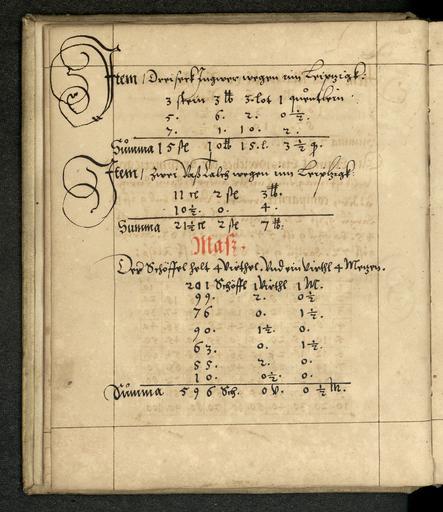 Item / Drei seck Ingwer wegen inn Leipzigk.
3 stein 3 ℔ 3. lot 1 quentlein
5. 6. 2. 0 ½.
7. 1. 10. 2.
Summa 15 ste 10 ℔ 15. l. 3 ½ q.
Item / zwei Vaß wegen inn Leipzigk
11 ce 2 ste 3 ℔.
10 ½. 0. 4.
Summa 21 ½ ce 2 ste 7 ℔.
Maß.
Der Schöffel helt 4 Virthel. Vnd ein Virthl 4 Metzen.
201 Schöffl 1 Virthl 1 M.
99. 2. 0 ½
76 0. 1 ½.
90. 1 ½. 0.
63. 0. 1 ½.
55. 2. 0.
10. 0 ½. 0.
Summa 596 Sch. 0 v. 0 ½ M.